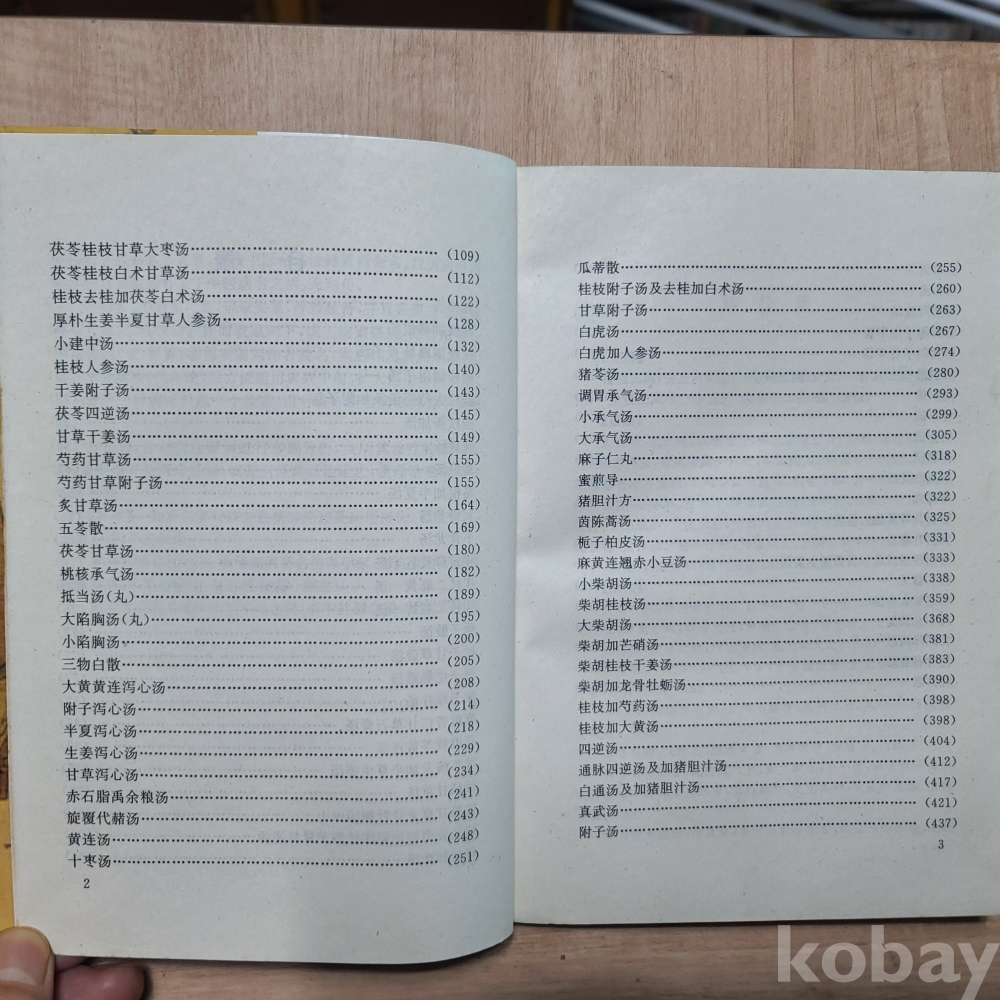 茯苓桂枝甘草大枣汤……(109)
茯苓桂枝白术甘草汤……(112)
桂枝去桂加茯苓白术汤……(122)
厚朴生姜半夏甘草人参汤……(128)
小建中汤……(132)
桂枝人参汤……(140)
干姜附子汤……(143)
茯苓四逆汤……(145)
甘草干姜汤……(149)
芍药甘草汤……(155)
芍药甘草附子汤……(155)
炙甘草汤……(164)
五苓散……(169)
茯苓甘草汤……(180)
桃核承气汤……(182)
抵当汤(丸)……(189)
大陷胸汤(丸)……(195)
小陷胸汤……(200)
三物白散……(205)
大黄黄连泻心汤……(208)
附子泻心汤……(214)
半夏泻心汤……(218)
生姜泻心汤……(229)
甘草泻心汤……(234)
赤石脂禹余粮汤……(241)
旋覆代赭汤……(243)
黄连汤……(248)
十枣汤……(251)
2
瓜蒂散……(255)
桂枝附子汤及去桂加白术汤……(260)
甘草附子汤……(263)
白虎汤……(267)
白虎加人参汤……(274)
猪苓汤……(280)
调胃承气汤……(293)
小承气汤……(299)
大承气汤……(305)
麻子仁丸……(318)
蜜煎导……(322)
猪胆汁方……(322)
茵陈蒿汤……(325)
栀子柏皮汤……(331)
麻黄连翘赤小豆汤……(333)
小柴胡汤……(338)
柴胡桂枝汤……(359)
大柴胡汤……(368)
柴胡加芒硝汤……(381)
柴胡桂枝干姜汤……(383)
柴胡加龙骨牡蛎汤……(390)
桂枝加芍药汤……(398)
桂枝加大黄汤……(398)
四逆汤……(404)
通脉四逆汤及加猪胆汁汤……(412)
白通汤及加猪胆汁汤……(417)
真武汤……(421)
附子汤……(437)
3
kobay